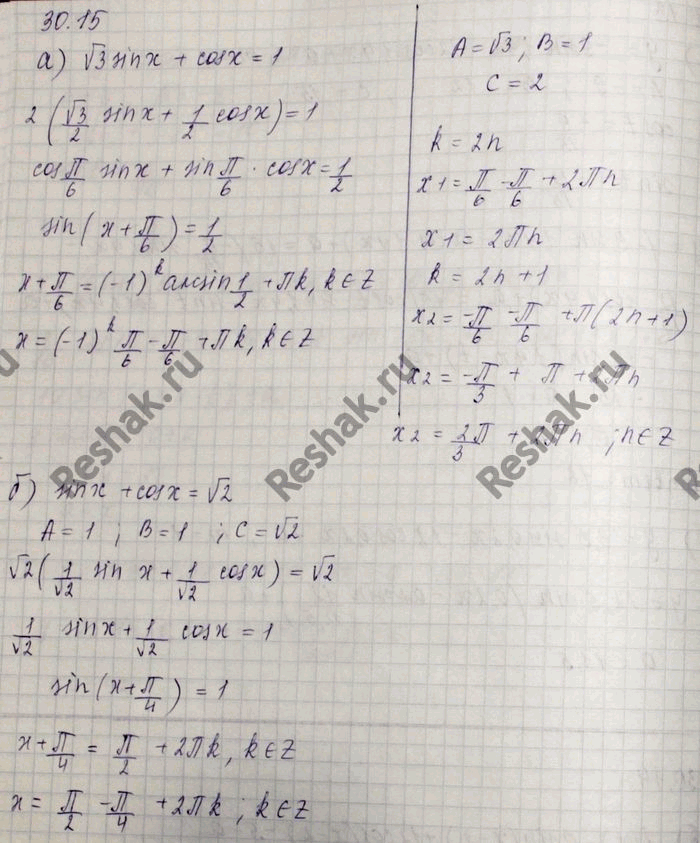 30.15
а) √3 sinx + cosx = 1
2 (√3/2 sinx + 1/2 cosx) = 1
cos π/6 sinx + sin π/6 · cosx = 1/2
sin(x + π/6) = 1/2
x + π/6 = (-1)^k arcsin 1/2 + πk, k ∈ Z
x = (-1)^k π/6 - π/6 + πk, k ∈ Z
A = √3 ; B = 1
C = 2
k = 2n
x1 = π/6 - π/6 + 2πn
x1 = 2πn
k = 2n + 1
x2 = -π/6 - π/6 + π(2n+1)
x2 = -π/3 + π + 2πn
x2 = 2/3 π + 2πn ; n ∈ Z
б) sinx + cosx = √2
A = 1 ; B = 1 ; C = √2
√2 (1/√2 sin x + 1/√2 cosx) = √2
1/√2 sinx + 1/√2 cosx = 1
sin(x + π/4) = 1
x + π/4 = π/2 + 2πk, k ∈ Z
x = π/2 - π/4 + 2πk ; k ∈ Z
Reshak.ru
Reshak.ru
Reshak.ru
Reshak.ru
Reshak.ru